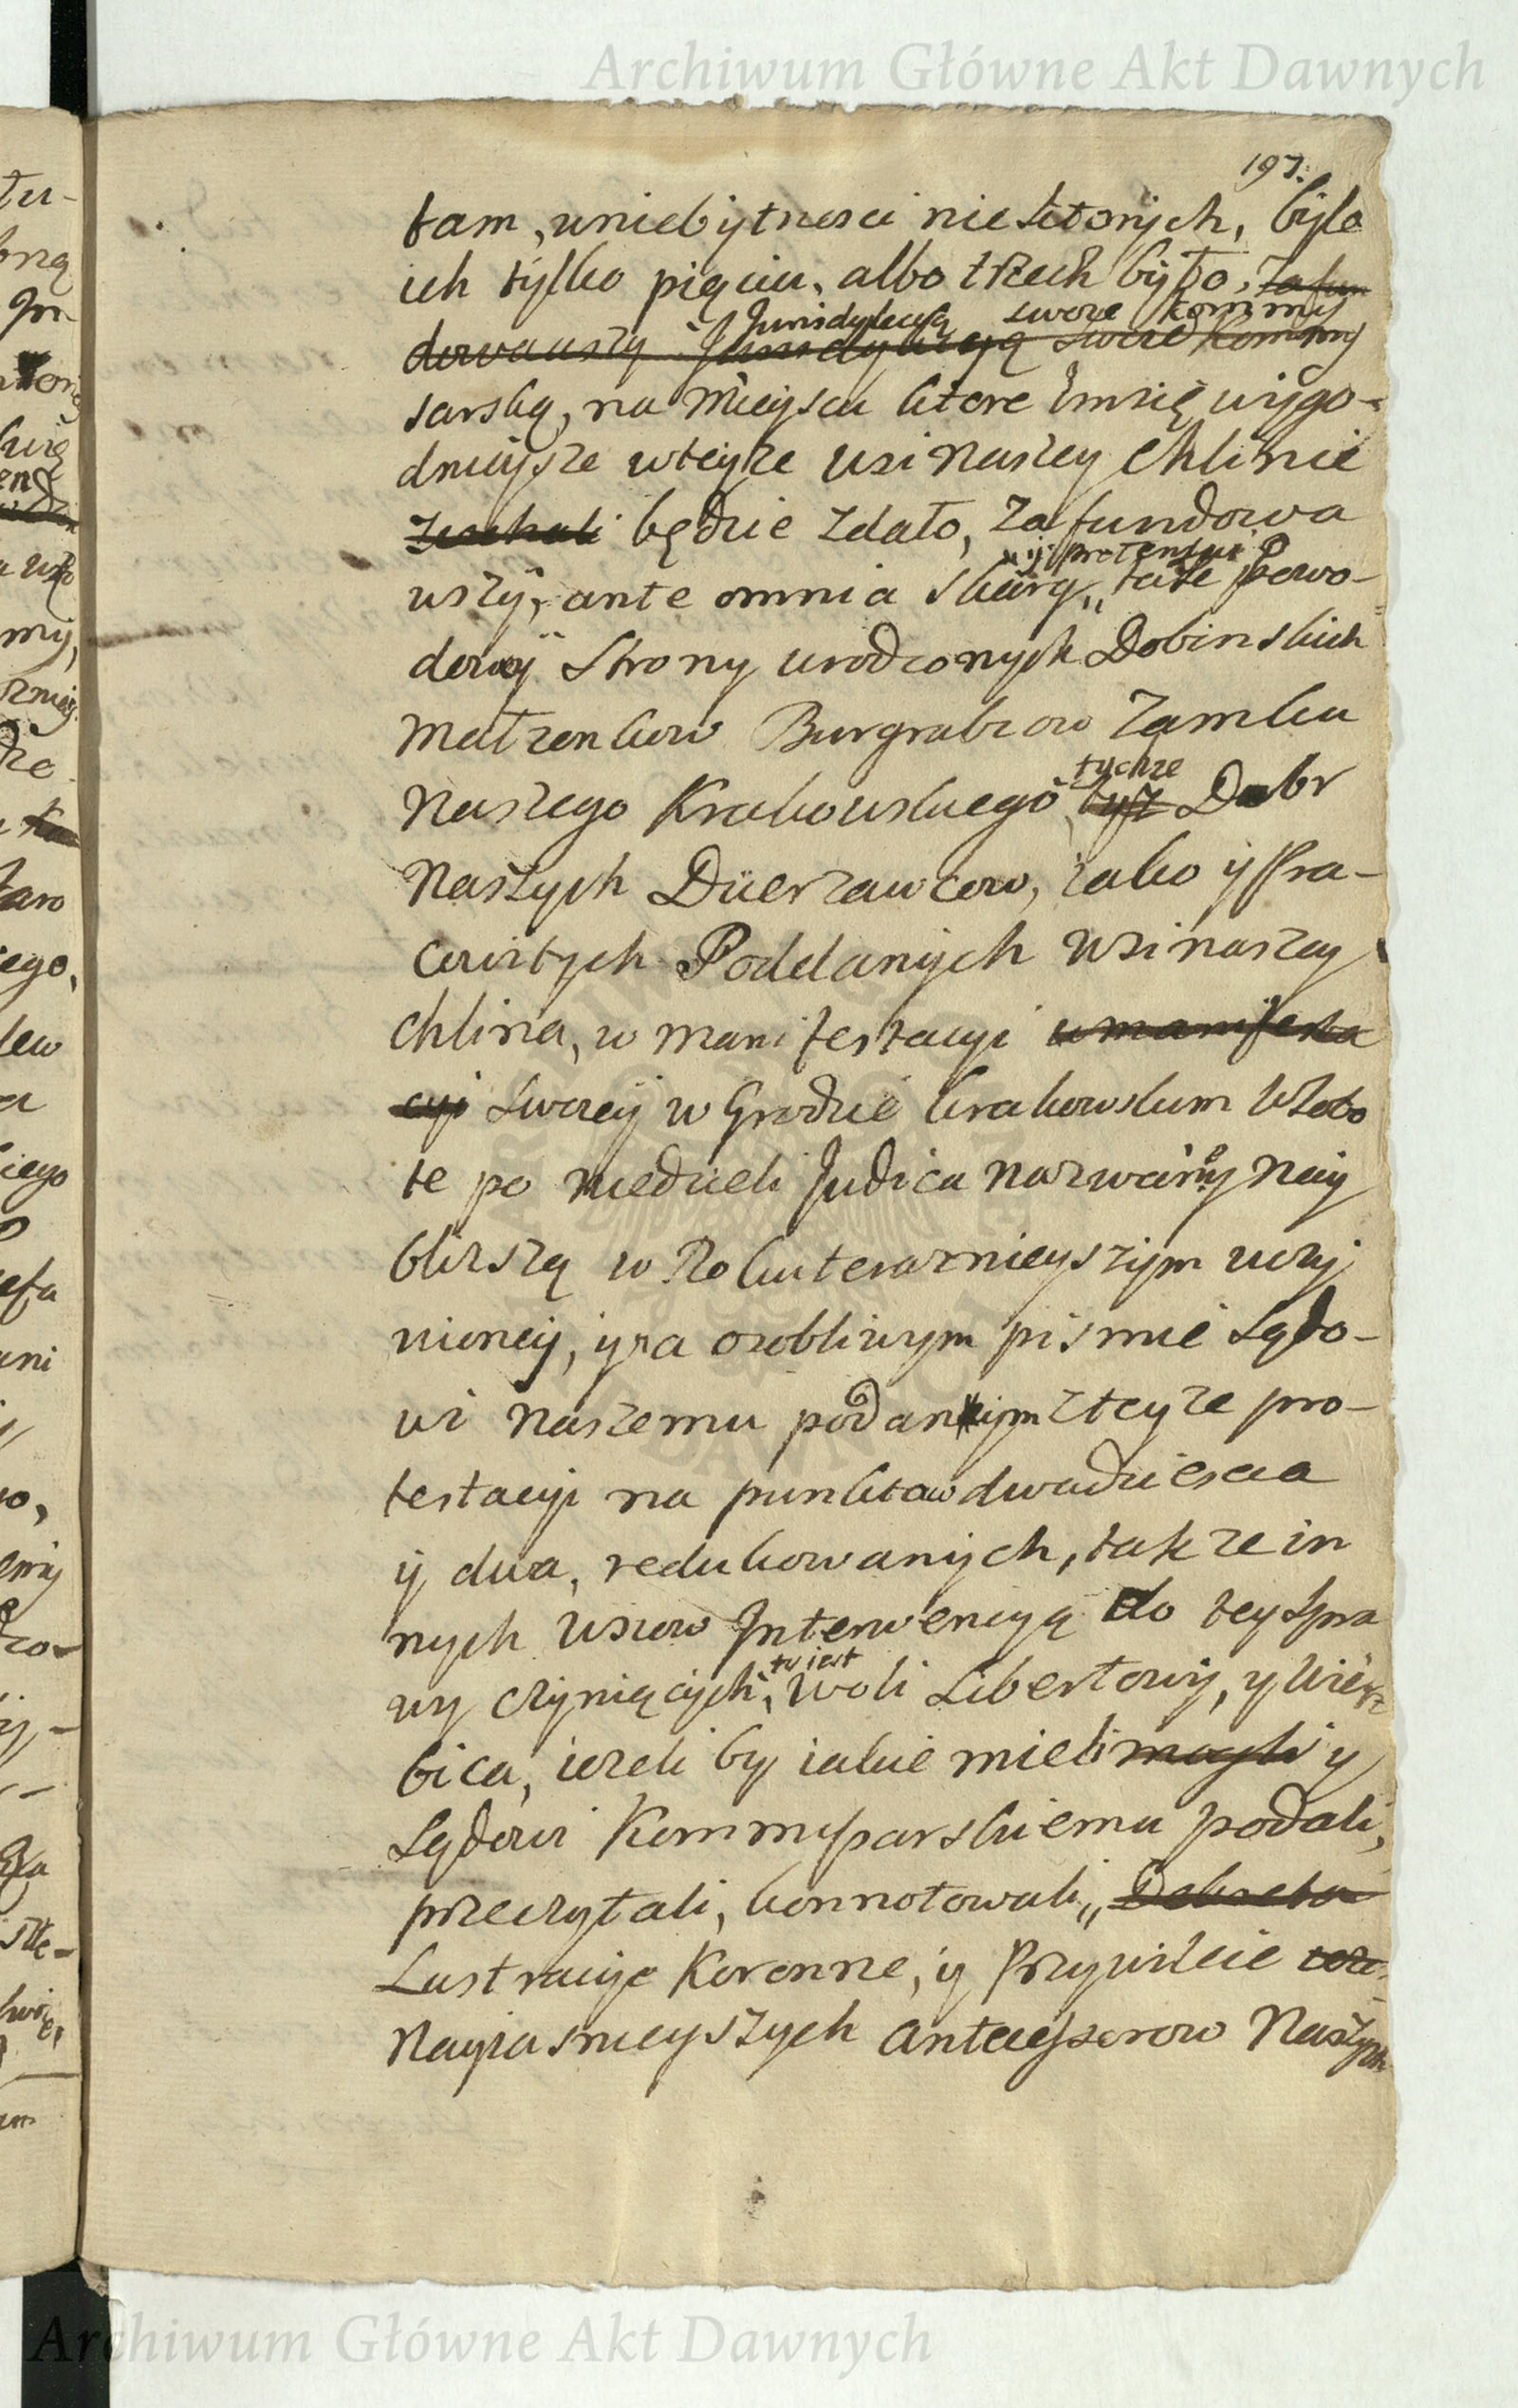 Archiwum Główne Akt Dawnych
197.
tam, w niebytnosci niektorych, było
ich tylko pięciu, albo trzech było, zafun
Jurisdykcyą swoie kommy
dowawszy Jurisdykcyą swoie kommy
sarską, na Mieyscu ktore im się wygo-
dnieysze w teyże wsi Naszey Chlinie
zechali będzie zdało, zafundowa
y pretensyi
wszy, ante omnia skarg, tak powo-
dowy Strony urodzonych Dobinskich
Małzonkow Burgrabiow Zamku
tychże
Naszego Krakowskiego tyż Dobr
Naszych Dzierzawcow, iako y Pra-
cowitych Poddanych wsi naszey
Chlina, w manifestacyi w manifesta
cyi swoiey w Grodzie krakowskim w Sobo
te po niedzieli Judica nazwany nay
bliższą w Roku teraznieyszym uczy
nioney, y na osobliwym pismie Sądo-
wi naszemu podanym z teyże pro-
testacyi na punktow dwadziescia
y dwa, redukowanych, także in
nych wsiow Interwencyą do tey Spra
to iest
wy czyniących, Woli Libertowy, y Wierz
bica, ieżeli by iakie mieli mogli y
Sądowi Kommissarskiemu podali,
przeczytali, konnotowali, Dekreta
Lustracyje Koronne, y Przywileie
Nayiasnieyszych Antecessorow Naszych
Archiwum Główne Akt Dawnych